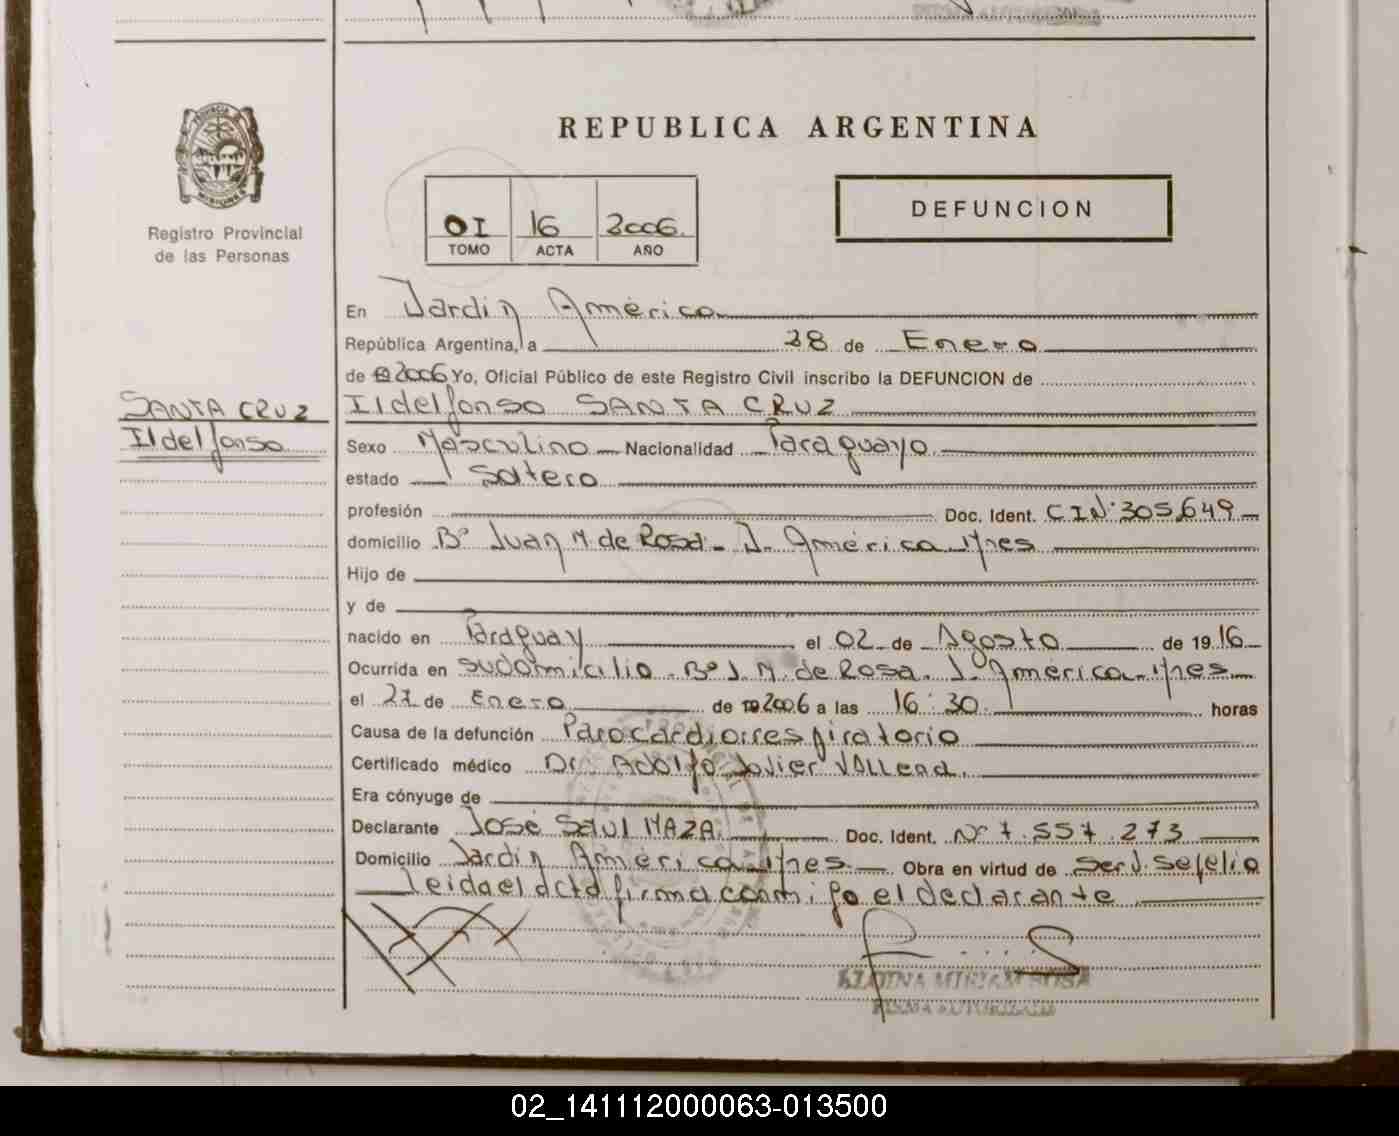 PROVINCIA DE
MISIONES
Registro Provincial
de las Personas
REPUBLICA ARGENTINA
OI 16 2006
TOMO ACTA AÑO
DEFUNCION
En Jardin América
República Argentina, a 28 de Enero
de 2006 Yo, Oficial Público de este Registro Civil inscribo la DEFUNCION de
SANTA CRUZ
Ildelfonso
Ildelfonso SANTA CRUZ
Sexo Masculino Nacionalidad Paraguayo
estado Soltero
profesión Doc. Ident. CIN° 305,649
domicilio B° Juan M. de Rosa - J. América - Mnes
Hijo de
y de
nacido en Paraguay el 02 de Agosto de 1916
Ocurrida en su domicilio - B° J. M. de Rosa. J. América - Mnes
el 27 de Enero de 2006 a las 16:30 horas
Causa de la defunción Parocardiorrespiratorio
Certificado médico Dr. Adolfo Javier
Era cónyuge de
Declarante José Saul MAZA Doc. Ident. N° 7.557.273
Domicilio Jardin América - Mnes Obra en virtud de Serv. Sepelio
Leida el acta firma conmigo el declarante
MIRIAM SOSA
02_141112000063-013500